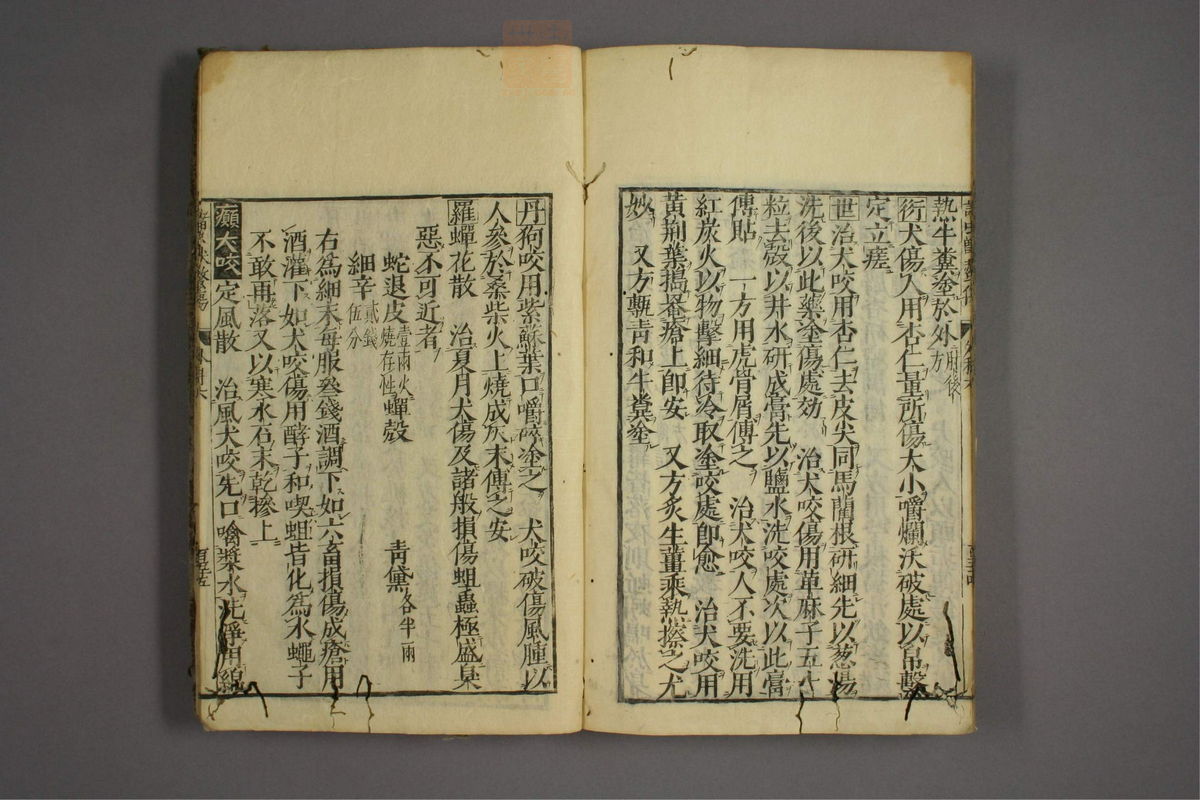 熱牛糞叁於外用後方
衍犬傷人用杏仁量所傷大小嚼爛沃破處以帛擊
定立瘥
世治犬咬用杏仁去皮尖同馬藺根研細先以葱湯
洗後以此藥塗傷處効 治犬咬傷用萆麻子五十
粒去殻以井水研成膏先以鹽水洗咬處次以此膏
傅貼 一方用虎骨屑傅之 治犬咬人不要洗用
紅炭火以物擊細待冷取塗咬處即愈 治犬咬用
黄荆葉搗菴瘡上即安 又方炙生薑乘熱擦之尤
妙 又方甎靑和牛糞塗
丹狗咬用紫蘇葉口嚼碎塗之 犬咬破傷風腫以
人參於桑柴火上燒成灰末傅之安
羅蟬花散 治夏月犬傷及諸般損傷蛆蟲極盛臭
惡不可近者
蛇退皮壹兩火燒存性 蟬殻 靑黛各半兩
細辛貳錢伍分
右為細末每服叁錢酒調下如六畜損傷成瘡用
酒灌下如犬咬傷用酵子和喫蛆皆化為水蠅子
不敢再落又以寒水石末乾摻上
癲犬咬 定風散 治風犬咬先口噙漿水洗淨用綿